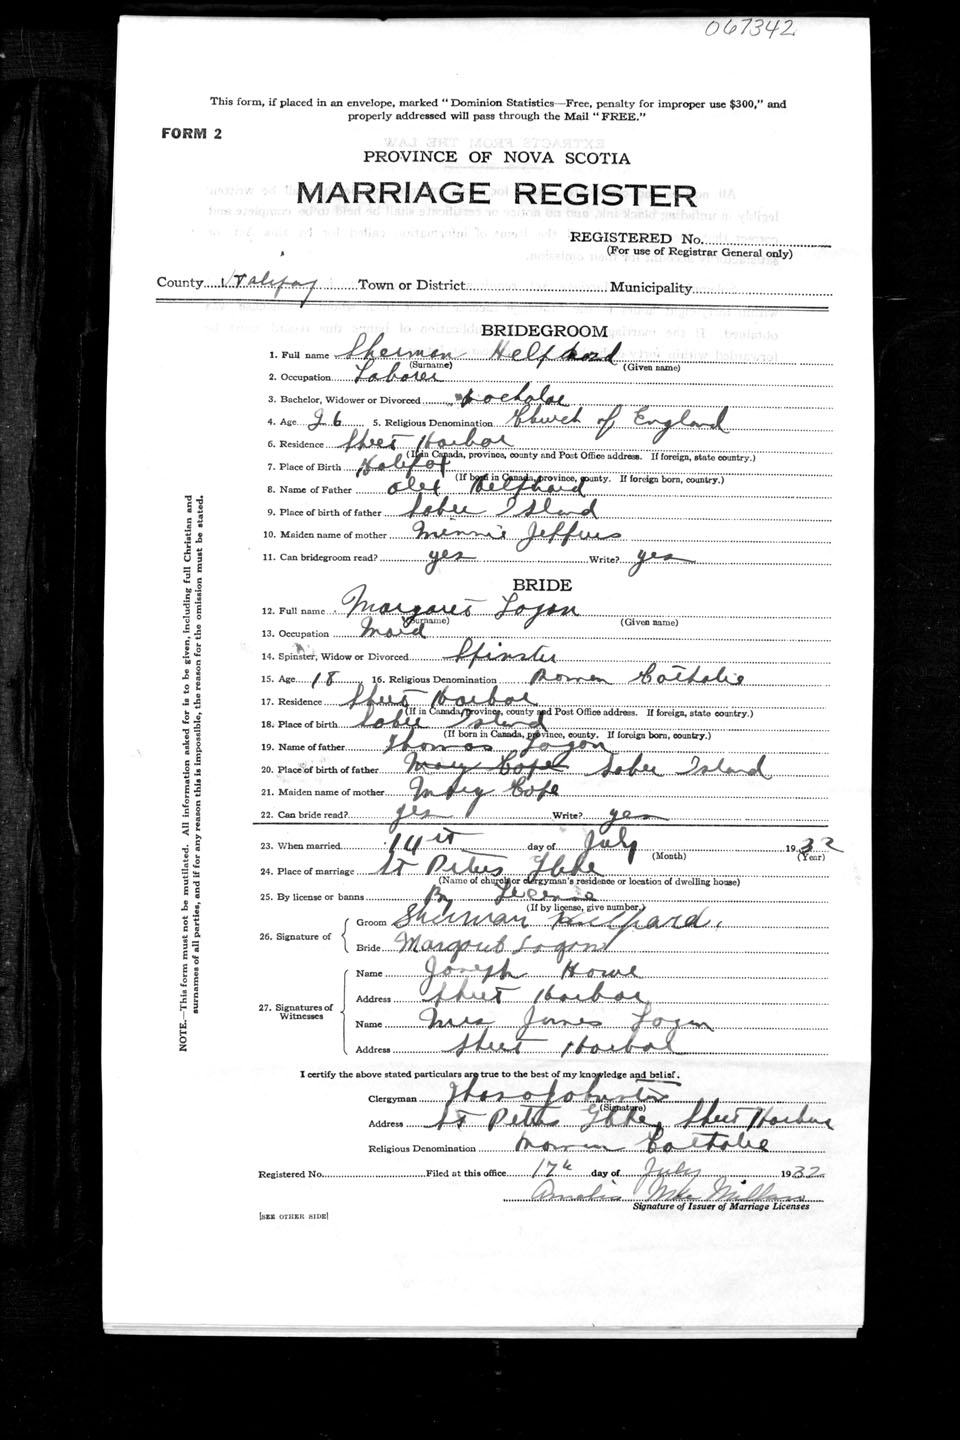 067342
This form, if placed in an envelope, marked "Dominion Statistics—Free, penalty for improper use $300," and
properly addressed will pass through the Mail "FREE."
FORM 2
PROVINCE OF NOVA SCOTIA
MARRIAGE REGISTER
REGISTERED No.
(For use of Registrar General only)
County Halifax Town or District Municipality
BRIDEGROOM
1. Full name Sherman Helphard
(Surname) (Given name)
2. Occupation Laborer
3. Bachelor, Widower or Divorced
4. Age 26 5. Religious Denomination Church of England
6. Residence Sheet Harbor
(If in Canada, province, county and Post Office address. If foreign, state country.)
7. Place of Birth Halifax
(If born in Canada, province, county. If foreign born, country.)
8. Name of Father Alex Helphard
9. Place of birth of father Sober Island
10. Maiden name of mother Minnie Jeffers
11. Can bridegroom read? yes Write? yes
BRIDE
12. Full name Margaret Logan
(Surname) (Given name)
13. Occupation Maid
14. Spinster, Widow or Divorced Spinster
15. Age 18 16. Religious Denomination Roman Catholic
17. Residence Sheet Harbor
(If in Canada, province, county and Post Office address. If foreign, state country.)
18. Place of birth Sober Island
(If born in Canada, province, county. If foreign born, country.)
19. Name of father Thomas Logan
20. Place of birth of father Mary Cope Sober Island
21. Maiden name of mother Mary Cope
22. Can bride read? yes Write? yes
23. When married 14 day of July 1932
(Month) (Year)
24. Place of marriage St Peters Glebe
(Name of church or clergyman's residence or location of dwelling house)
25. By license or banns By License
(If by license, give number.)
26. Signature of Groom Sherman Hulphard.
Bride Margaret Logan
27. Signatures of Witnesses Name Joseph Howe
Address Sheet Harbor
Name Mrs James Logan
Address Sheet Harbor
I certify the above stated particulars are true to the best of my knowledge and belief.
Clergyman
(Signature)
Address St Peters Glebe, Sheet Harbor
Religious Denomination Roman Catholic
Registered No. Filed at this office 17th day of July 1932
Signature of Issuer of Marriage Licenses
[SEE OTHER SIDE]
NOTE.—This form must not be mutilated. All information asked for is to be given, including full Christian and
surnames of all parties, and if for any reason this is impossible, the reason for the omission must be stated.